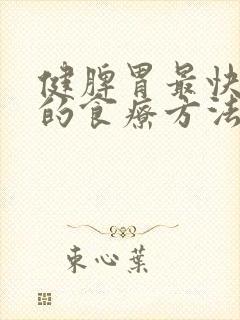 健脾胃最快
的食疗方法
束心葉